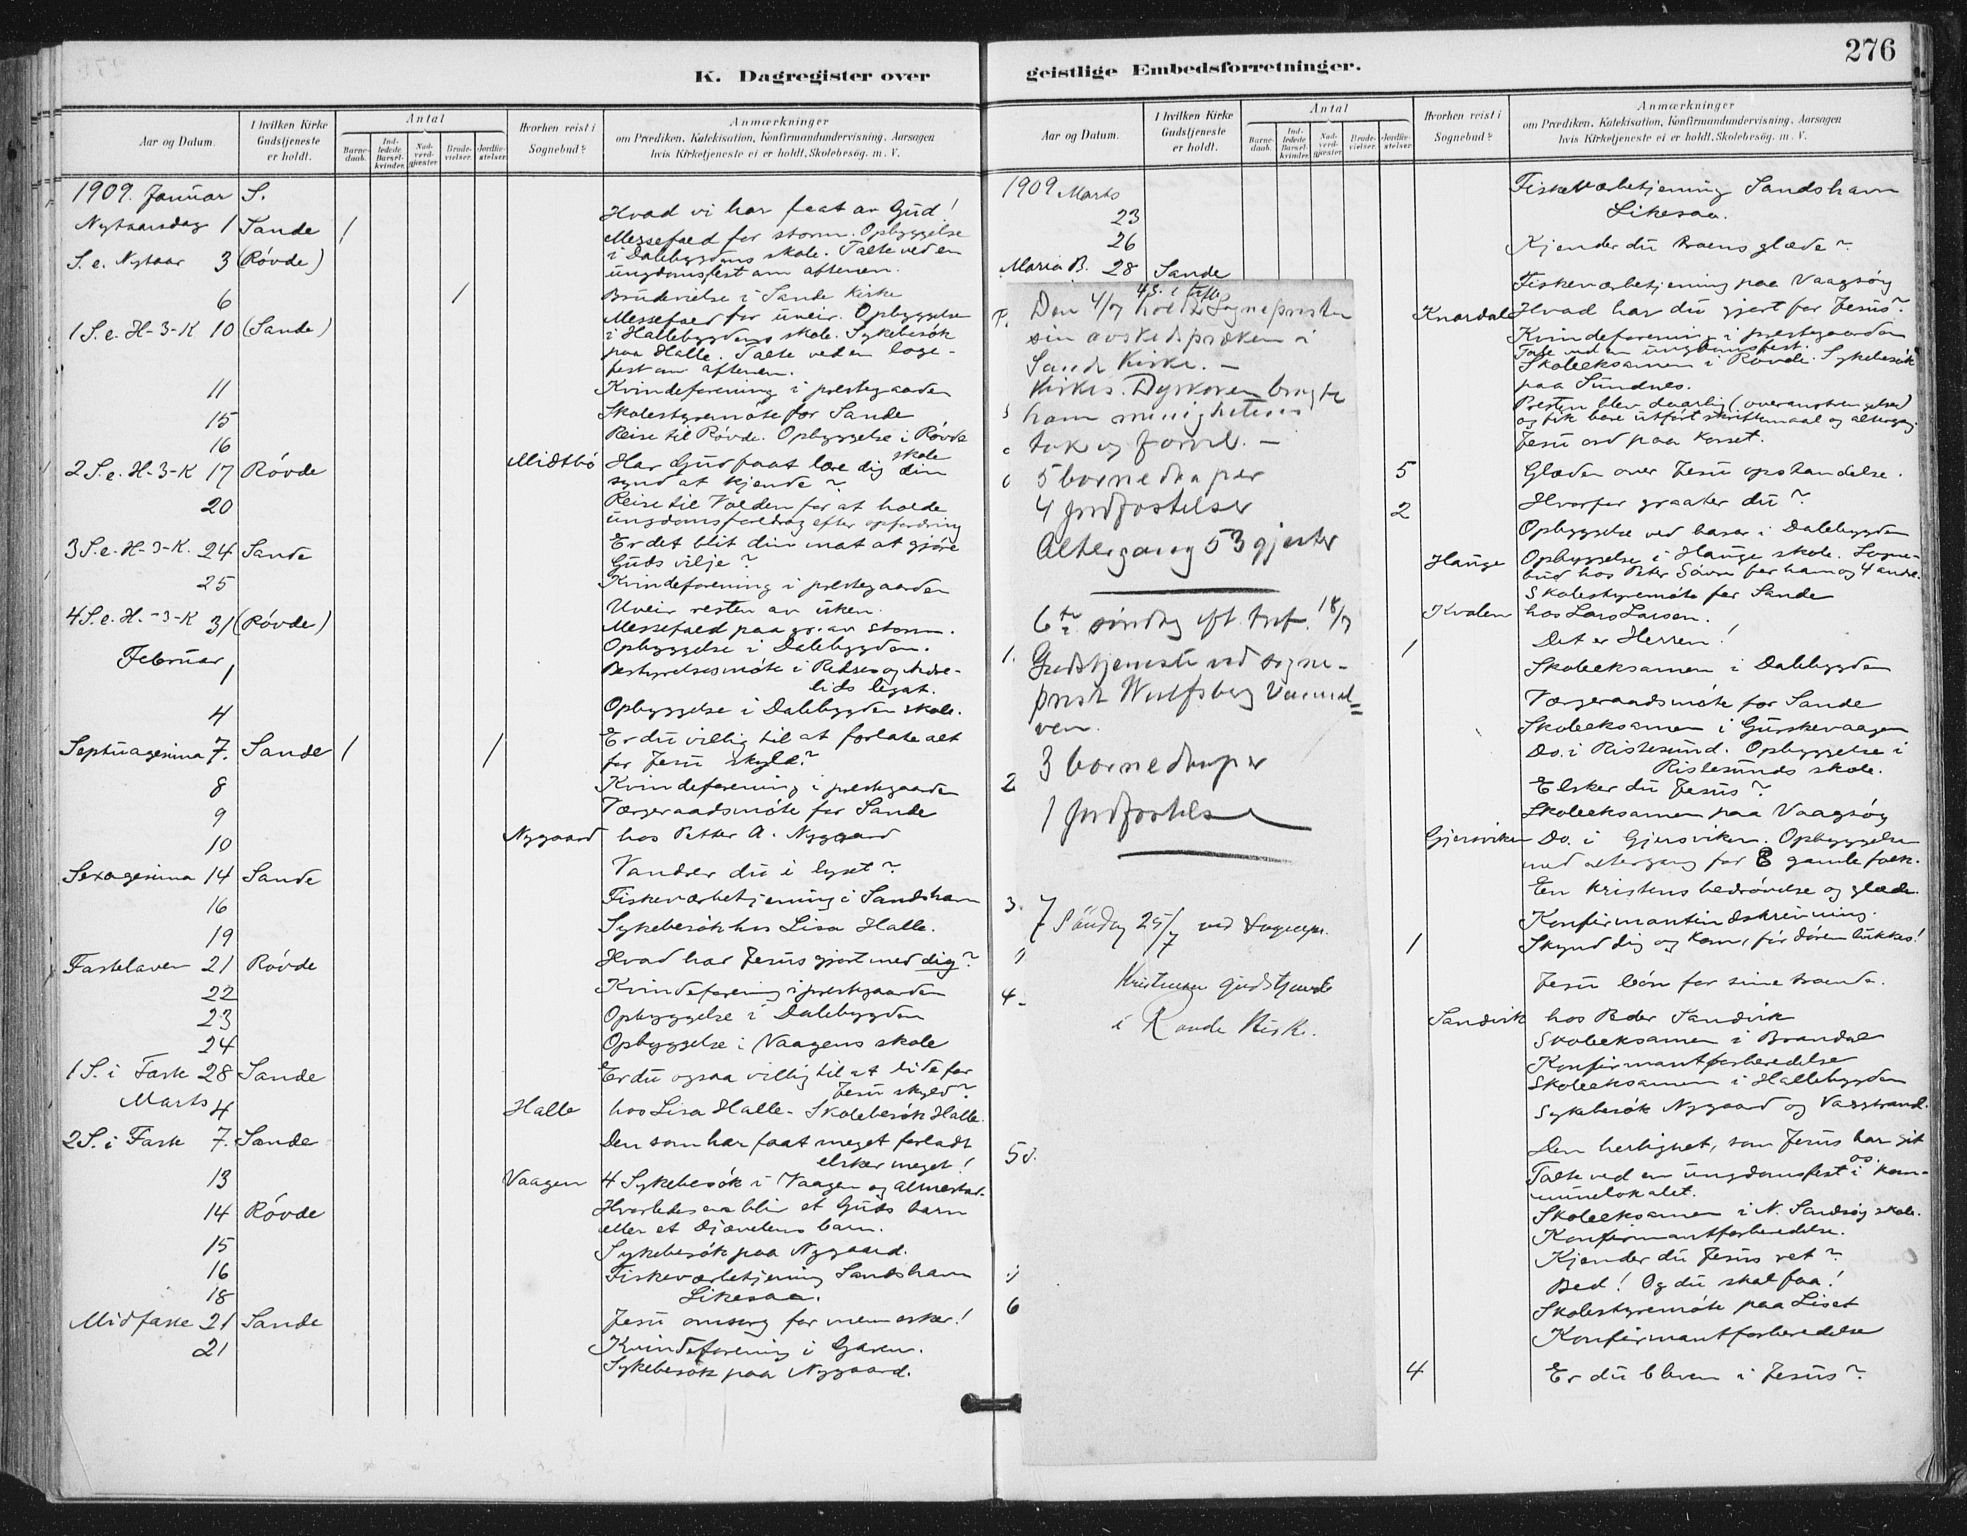 K. Dagregister over
Aar og Datum.
I hvilken Kirke Gudstjeneste er holdt.
Antal
Barnedaab.
Indledede Barselkvinder.
Nadverdgjester.
Brudevielser.
Jordfæstelser.
Hvorhen reist i Sognebud?
Anmærkninger
om Prædiken, Katekisation, Konfirmandundervisning, Aarsagen
hvis Kirketjeneste ei er holdt, Skolebesøg. m. V.
1909. Januar S.
Nytaarsdag 1 Sande 1 Hvad vi har faat av Gud!
S. e. Nytaar 3 (Røvde) Messefald for storm. Opbyggelse
i Dalebygdens skole. Talte ved en
ungdomsfest om aftenen.
6 1 Brudevielse i Sande Kirke
1 S. e. H-3-K 10 (Sande) Messefald for uveir. Opbyggelse
i Hallebygdens skole. Sykebesøk
paa Halle. Talte ved en loge-
fest om aftenen.
11 Kvindeforening i prestegaarden
15 Skolestyremøte for Sande
16 Reise til Røvde. Opbyggelse i Røvde
skole
2 S. e. H-3-K 17 Røvde Midtbø Har Gud faat lære dig din
synd at kjende?
20 Reise til Volden for at holde
ungdomsforedrag efter opfordring
3 S. e. H-3-K. 24 Sande Er det blit din mat at gjøre
Guds vilje?
25 Kvindeforening i prestegaarden
Uveir resten av uken.
4 S. e. H.-3-K 31 (Røvde) Messefald paa gr. av storm.
Opbyggelse i Dalebygden.
Februar 1 Bestyrelsesmøte i
lids legat.
4 Opbyggelse i Dalebygden skole.
Septuagesima 7. Sande 1 1 Er du villig til at forlate alt
for Jesu skyld?
8 Kvindeforening i prestegaarden
9 Værgeraadsmøte for Sande
10 Nygaard hos Petter A. Nygaard
Sexagesima 14 Sande Vandrer du i lyset?
16 Fiskeværbetjening i Sandshavn
19 Sykebesøk hos Lisa Halle.
Fastelaven 21 Røvde Hvad har Jesus gjort med dig?
22 Kvindeforening i prestegaarden
23 Opbyggelse i Dalebygden
24 Opbyggelse i Vaagens skole
1 S. i Faste 28 Sande Er du ogsaa villig til at lide for
Jesu skyld?
Marts 4 Halle hos Lisa Halle - Skolebesøk Halle.
2 S. i Faste 7. Sande Den som har faat meget forladt
elsker meget!
13 Vaagen 4 Sykebesøk i Vaagen og
14 Røvde Hvorledes en blir et Guds barn
eller et Djævelens barn.
15 Sykebesøk paa Nygaard.
16 Fiskeværbetjening Sandshavn
18 Likesaa.
Midfaste 21 Sande Jesu omsorg for mennesker!
21 Kvindeforening i Garen.
Sykebesøk paa Nygaard.
geistlige Embedsforretninger.
276
Aar og Datum.
I hvilken Kirke Gudstjeneste er holdt.
Antal
Barnedaab.
Indledede Barselkvinder.
Nadverdgjester.
Brudevielser.
Jordfæstelser.
Hvorhen reist i Sognebud?
Anmærkninger
om Prædiken, Katekisation, Konfirmandundervisning, Aarsagen
hvis Kirketjeneste ei er holdt, Skolebesøg. m. V.
1909 Marts
23 Fiskeværbetjening Sandshavn
26 Likesaa.
Maria B. 28 Sande Kjender du Troens glæde?
4 S. e. Trft.
Den 4/7 holdt Sognepresten
sin avskedspræken i
Sande Kirke. —
Kirkes. Dyrkoren bragte
ham menighetens
tak og farvel. —
5 barnedaaper
4 Jordfæstelser
Altergang 53 gjester
6te søndag eft. tref. 18/7
Gudstjeneste ved sogne-
prest Wulfsberg Vannel-
ven.
3 barnedaaper
1 Jordfæstelse
7 Söndag 25/7 ved Sognepr.
Kristensen Gudstjeneste
i Røvde Kirke.
Fiskeværbetjening paa Vaagsøy
Knardal Hvad har du gjort for Jesus?
Kvindeforening i prestegaarden
Tale ved en ungdomsfest.
Skoleeksamen i Røvde. Sykebesøk
paa Sundnes.
Presten blev daarlig (overanstrengelse)
og fik bare utført skriftemaal og altergang.
Jesu ord paa korset.
5 Glæden over Jesu opstandelse.
2 Hvorfor graater du?
Opbyggelse ved basar i Dalebygden
Hauge Opbyggelse i Hauge skole. Sogne-
bud hos Peter Søvre for ham og 4 andre.
Skolestyremøte for Sande
Kvalen hos Lars Larsen.
1 Det er Herren!
Skoleeksamen i Dalebygden
Værgeraadsmøte for Sande
Skoleeksamen i Gurskevaagen
Do. i Ristesund. Opbyggelse i
Ristesunds skole.
Elsker du Jesus?
Skoleeksamen paa Vaagsøy
Gjersviken Do. i Gjersviken. Opbyggelse
med altergang for 8 gamle folk.
En kristens bedrøvelse og glæde.
Konfirmantindskrivning.
1 Skynd dig og kom, før døren lukkes!
Jesu bøn for sine troende.
Sandvik hos Peder Sandvik
Skoleeksamen i Brandal
Konfirmantforberedelse
Skoleeksamen i Hallebygden
Sykebesøk Nygaard og Vaagstrand.
Den herlighet, som Jesus har git
os.
Talte ved en ungdomsfest i kom-
munelokalet.
Skoleeksamen i N. Sandsøy skole.
Konfirmantforberedelse.
Kjender du Jesus ret?
Bed! Og du skal faa!
Skolestyremøte paa Liset
Konfirmantforberedelse
4 Er du bleven i Jesus?